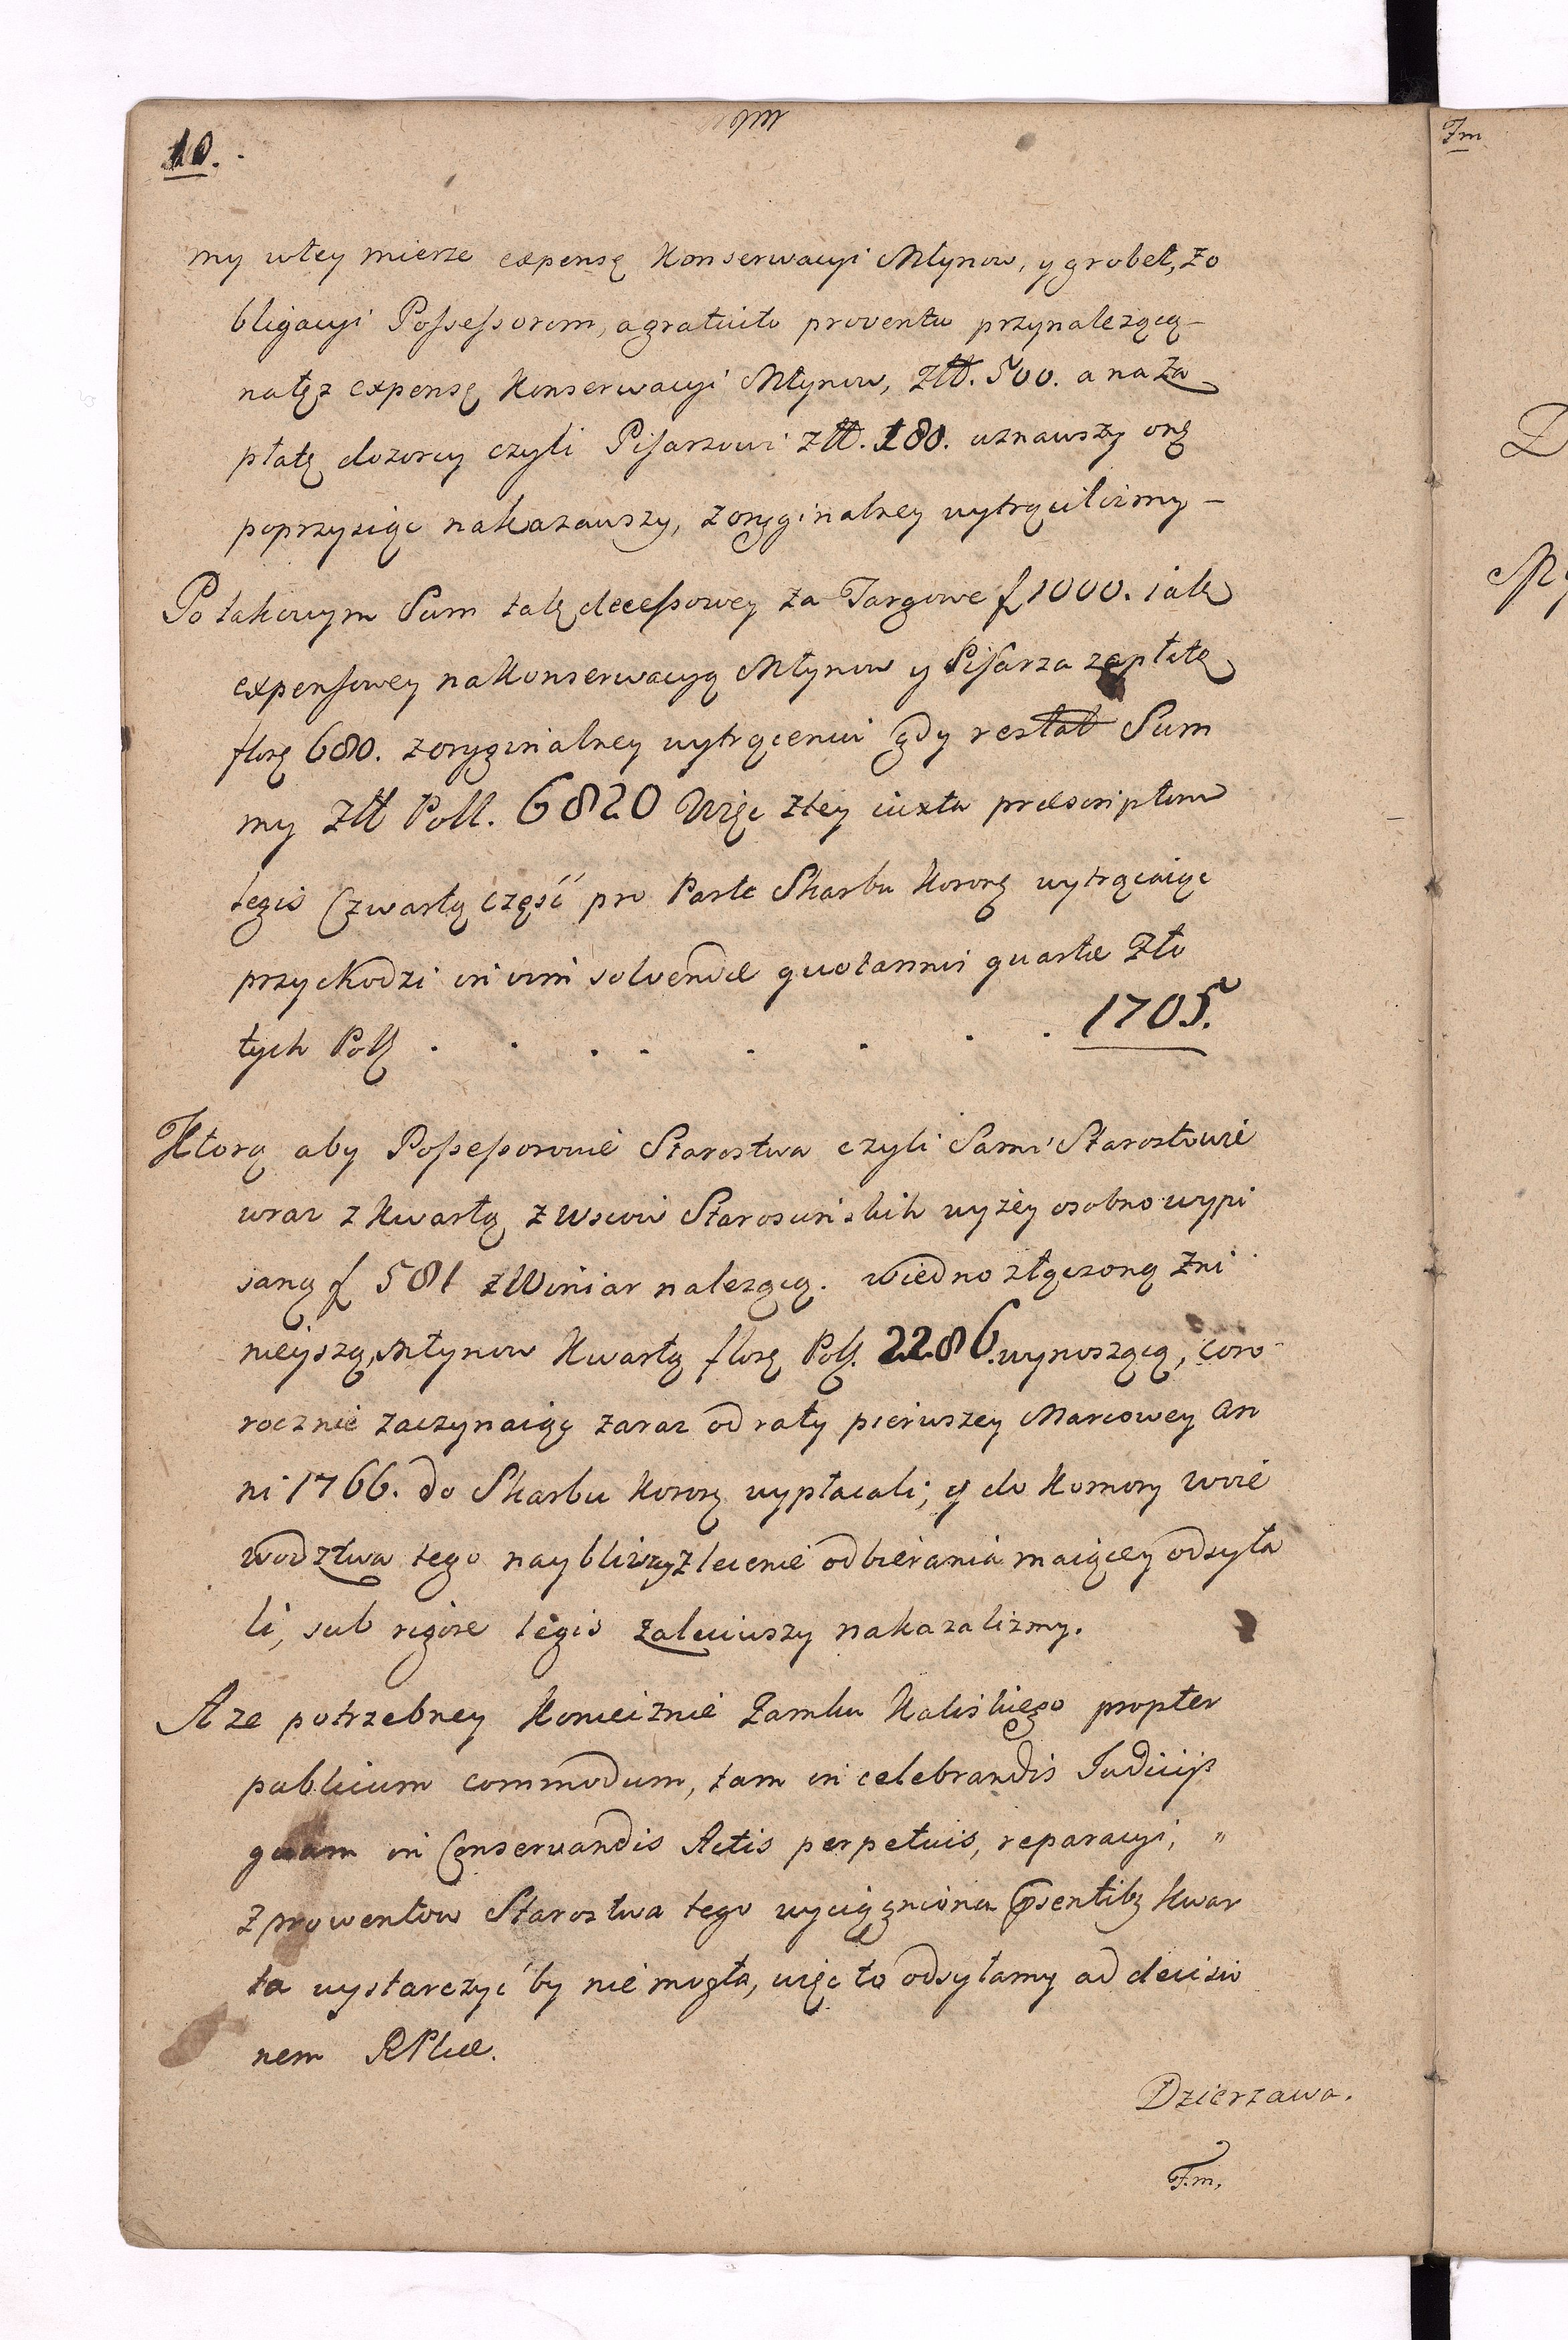 10.
my wtey mierze expensę Konserwacyi Młynow, y grobel, zo
bligacyi Possessorom, a gratuito proventu przynalezącą
natęż expensę Konserwacyi Młynow, złł. 500. a na Za
płatę dozorcy czyli Pisarzowi złł. 180. uznawszy onę
poprzysiąc nakazawszy, z oryginalney wytrącilismy –
Po takowym Sum tak decessowey za Targowe f 1000. iak
expensowey na Konserwacyą Młynow y Pisarza zapłatę
florę 680. z oryginalney wytrąceniu gdy restat Sum
my Złł Poll. 6820 Więc ztey iuxta praescriptum
legis Czwartą część pro Parte Skarbu Koronę wytrącaiąc
przychodzi in vim solvendae quotannis quartae Zło
tych Polſ . . . . . . . . 1705.
Ktorą aby Possessorowie Starostwa czyli Sami Starostowie
wraz z Kwartą z Wsiow Starościnskich wyżey osobno wypi
saną f 581 z Winiar nalezącą. wiedno złączoną z ni
nieyszą Młynow Kwartą florę Polſ. 2286. wynoszącą, coro
rocznie zaczynaiąc zaraz od raty pierwszey Marcowey an
ni 1766. do Skarbu Koronę wypłacali; y do Komory Woie
wodztwa tego naybliższy zlecenie odbierania maiącey odsyła
li, sub rigore legis zaleciwszy nakazalismy.
A ze potrzebney Koniecznie Zamku Kaliskiego propter
publicum commodum, tam in celebrandis Iudiciis
quam in Conservandis Actis perpetuis, reparacyi, "
z prowentow Starostwa tego wyciągniona psentibz Kwar
ta wystarczyć by nie mogła, więc to odsyłamy ad decisio
nem RPlicae.
Dzierzawa.
F.m.
Fm